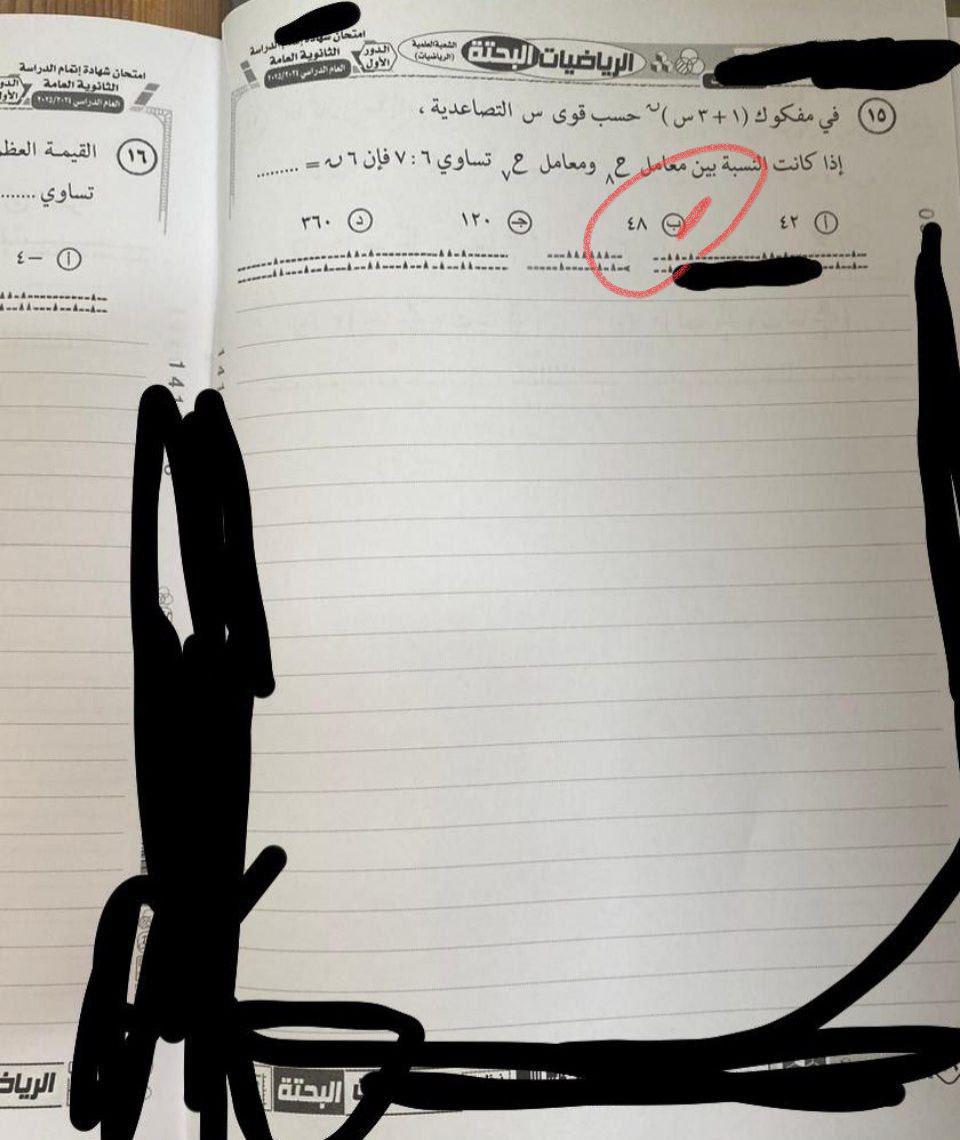 امتحان شهادة إتمام الدراسة
الثانوية العامة
العام الدراسي ٢٠٢٥/٢٠٢٤
الدور
الأول
الشعبة العلمية
(الرياضيات)
الرياضيات البحتة
١٥ في مفكوك (١ + ٣ س)ⁿ حسب قوى س التصاعدية ،
إذا كانت النسبة بين معامل ح٨ ومعامل ح٧ تساوي ٦ : ٧ فإن ٦ ن = .........
أ ٤٢
ب ٤٨
ج ١٢٠
د ٣٦٠
امتحان شهادة إتمام الدراسة
الثانوية العامة
العام الدراسي ٢٠٢٥/٢٠٢٤
١٦ القيمة العظ
تساوي ......
أ −٤
البحتة
الرياض